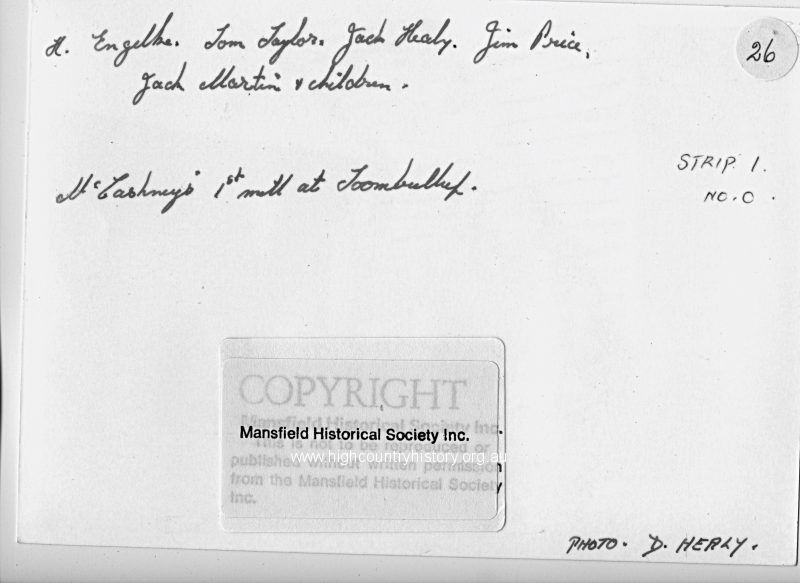 H. Engelke. Tom Taylor. Jack Healy. Jim Price,
26
Jack Martin & children.
McCashney's 1st mill at Toombullup.
STRIP. 1.
NO. 0.
COPYRIGHT
Mansfield Historical Society Inc.
Mansfield Historical Society Inc.
This is not to be reproduced or
www.highcountryhistory.org.au
published without written permission
from the Mansfield Historical Society
Inc.
PHOTO. D. HEALY.